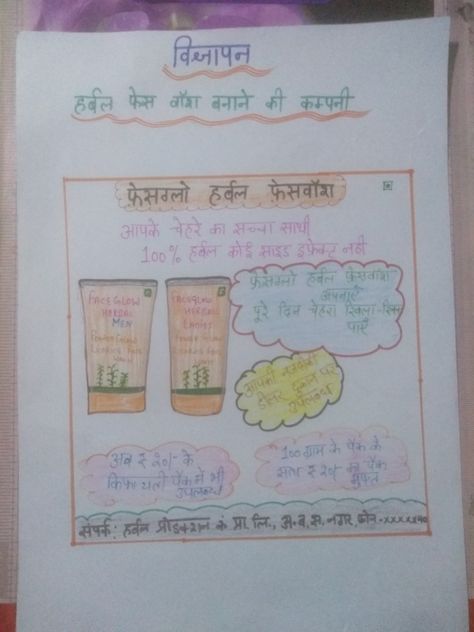 विज्ञापन
हर्बल फेस वॉश बनाने की कम्पनी
फ़ेसग्लो हर्बल फ़ेसवॉश
आपके चेहरे का सच्चा साथी
100% हर्बल कोई साइड इफ़ेक्ट नहीं
FACE GLOW
HERBAL
MEN
POWER GLOW
FACE
WASH
FACE GLOW
HERBAL
LADIES
POWER GLOW
FACE
WASH
फ़ेसग्लो हर्बल फ़ेसवॉश
अपनाएँ
पूरे दिन चेहरा खिला-खिला
पाएँ
आपकी नज़दीकी
पर
उपलब्ध
अब ₹ 20/- के
किफ़ायती पैक में भी
उपलब्ध
100 ग्राम के पैक के
साथ ₹ 20/- का पैक
मुफ़्त
संपर्क: हर्बल प्रोडक्शन कं प्रा. लि., अ. ब. स. नगर, फ़ोन-